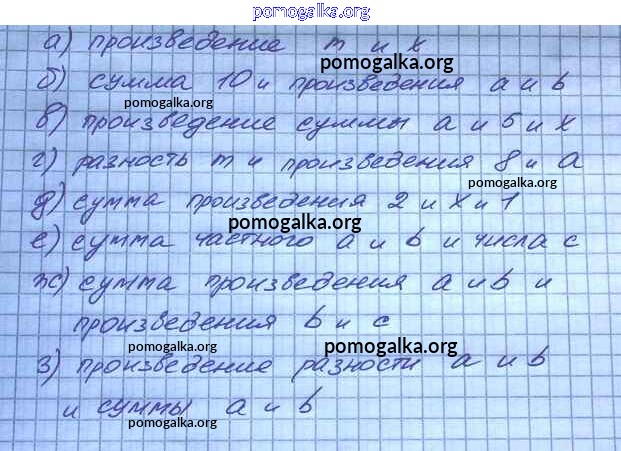 pomogalka.org
а) произведение m и x
pomogalka.org
б) сумма 10 и произведения a и b
pomogalka.org
в) произведение суммы a и 5 и x
г) разность m и произведения 8 и a
pomogalka.org
д) сумма произведения 2 и x и 1
pomogalka.org
е) сумма частного a и b и числа c
ж) сумма произведения a и b и
произведения b и c
pomogalka.org pomogalka.org
з) произведение разности a и b
и суммы a и b
pomogalka.org